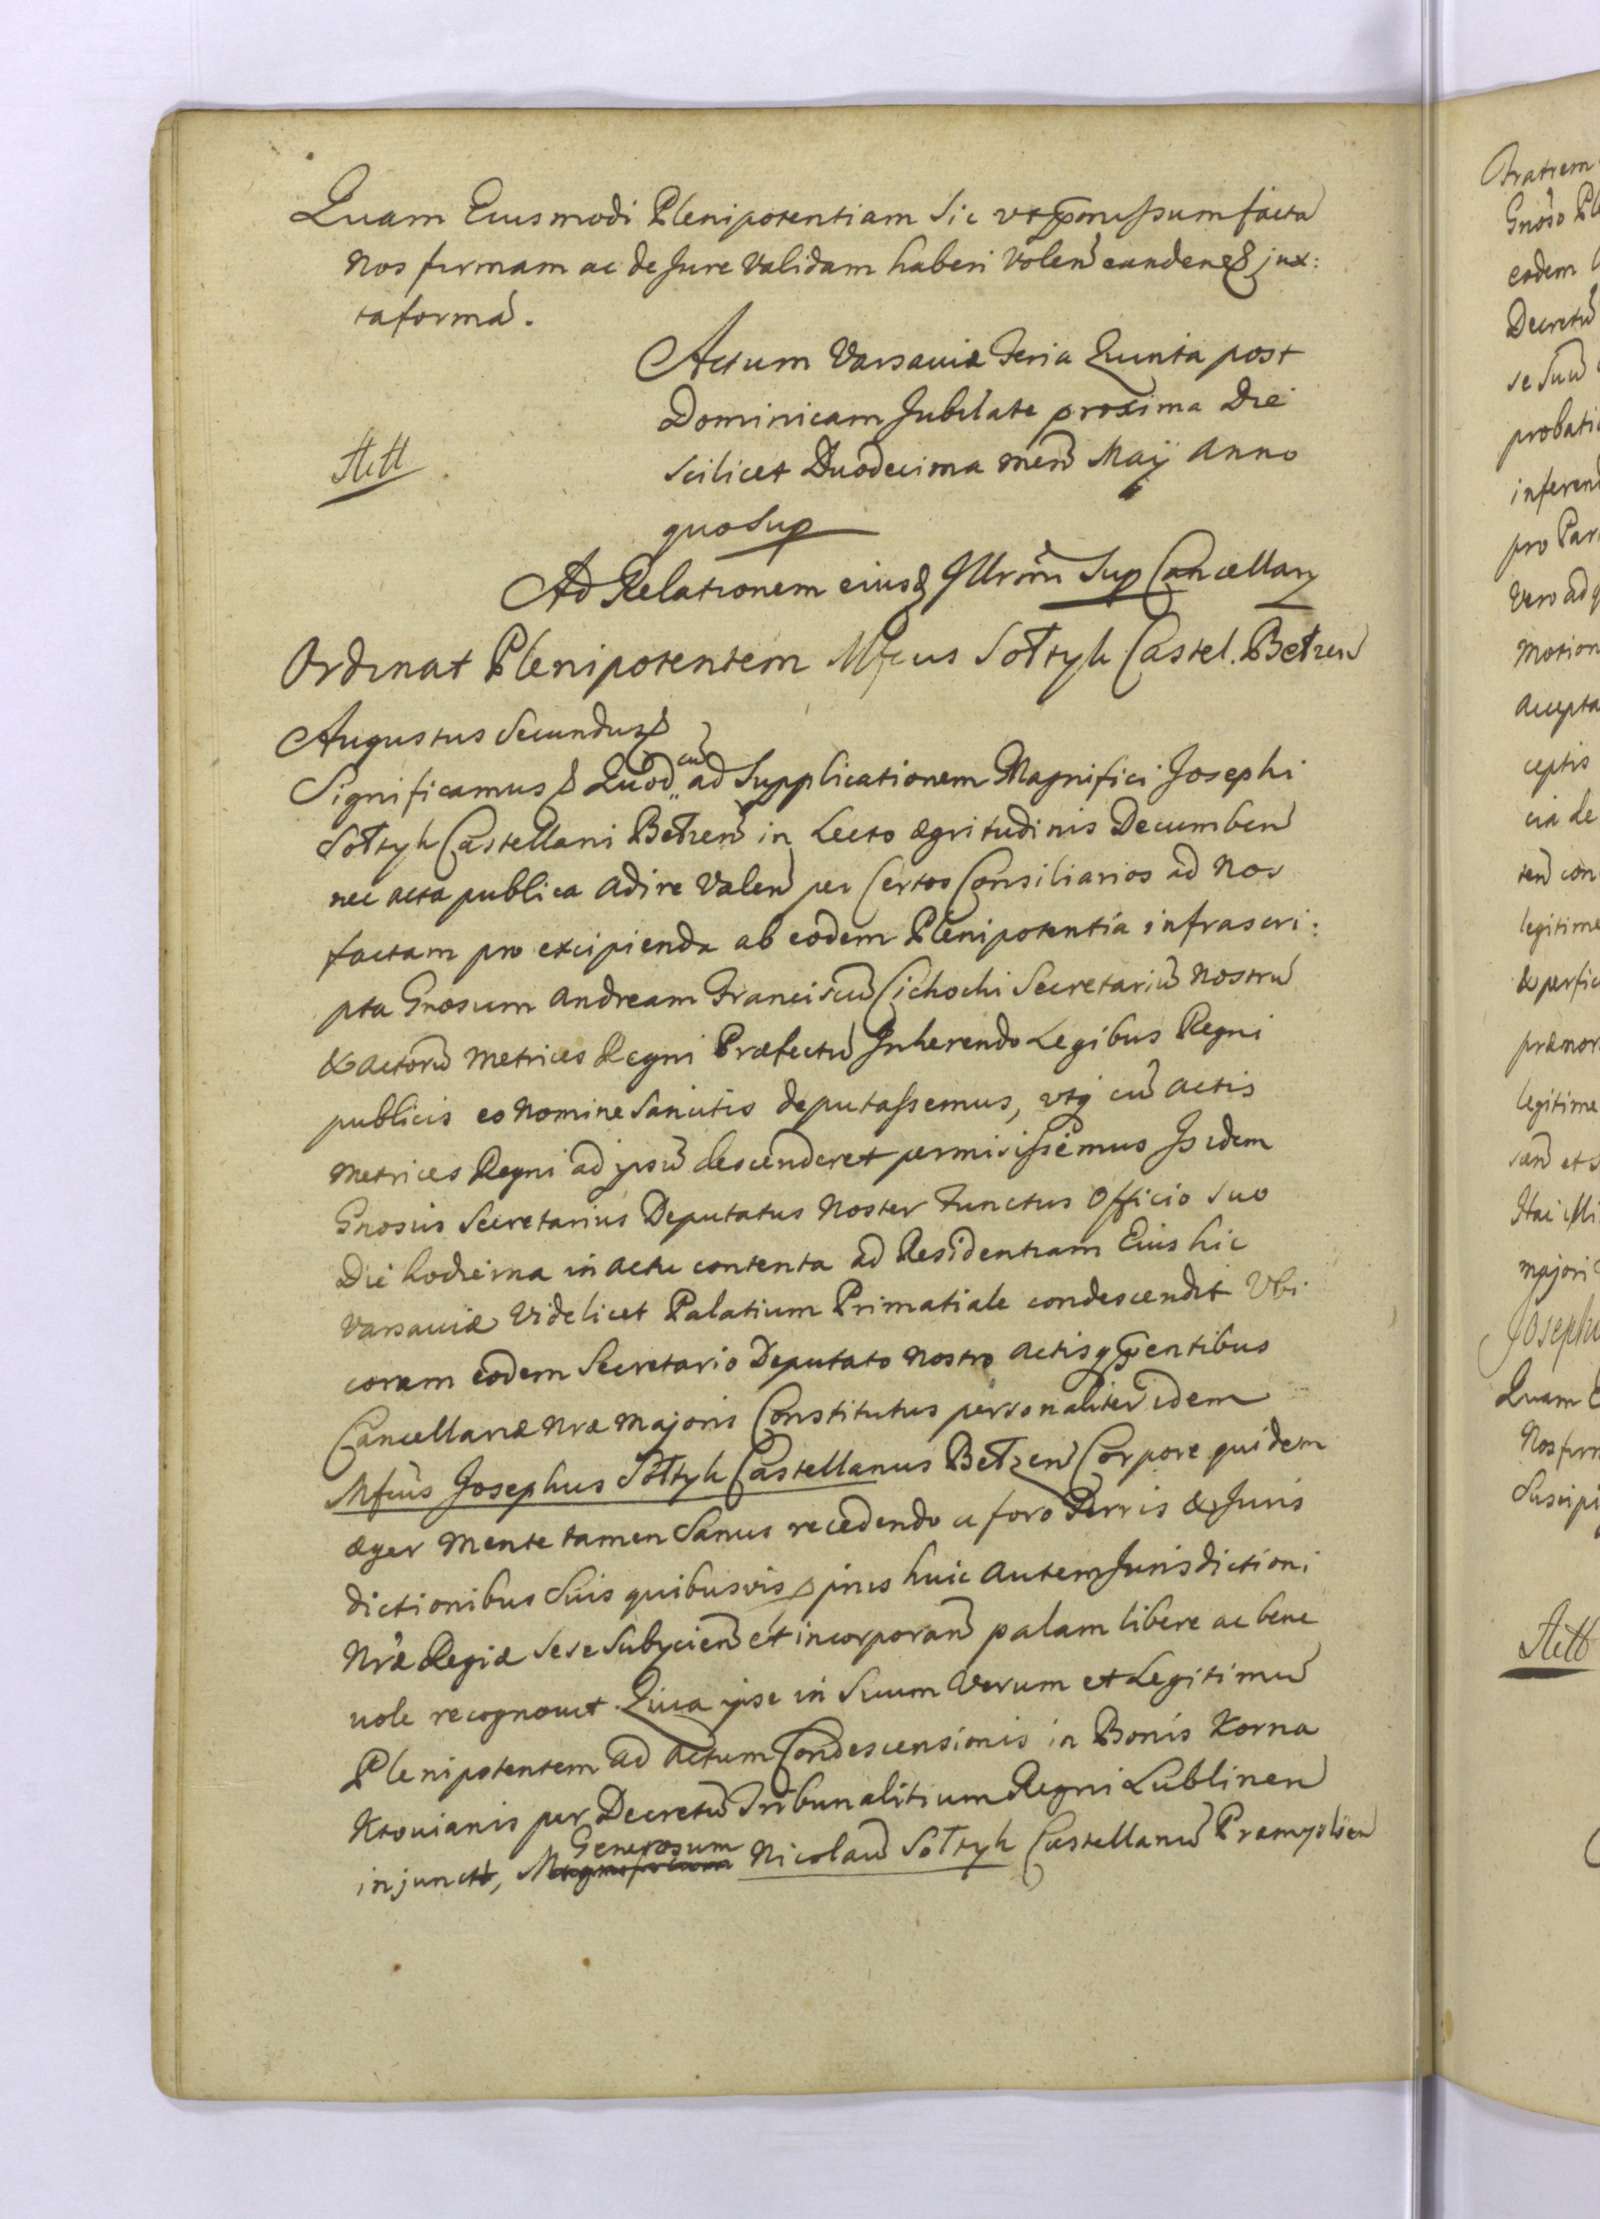 Quam Eiusmodi Plenipotentiam Sic facta
Nos firmam ac de Jure Validam haberi Volen jux:
ta formã.
Actum Varsaviæ Feria Quinta post
Dominicam Jubilate proxima Die
Scilicet Duodecima Men Maÿ Anno
quo Sup
Ad Relationem eiusd Illrmi Sup Cancellarÿ
Ordinat Plenipotentem Mfcus Sołtyk Castel. Bełzen
Augustus Secundus
Significamus & Quod cũ ad Supplicationem Magnifici Josephi
Sołtyk Castellani Bełzen in Lecto ægritudinis Decumben
nec acta publica adire Valen per Certos Consiliarios ad Nos
factam pro excipienda ab eodem Plenipotentia infrascri:
pta Gnosum Andream Franciscũ Cichocki Secretariũ Nostrũ
& actorũ Metrices Regni Præfectũ Inherendo Legibus Regni
publicis eo Nomine Sancitis deputassemus, utq cũ actis
Metrices Regni ad ipsũ descenderet permisissemus Isidem
Gnosus Secretarius Deputatus Noster Functus Officio suo
Die hodierna in actu contenta ad Residentiam Eius hic
Varsaviæ Videlicet Palatium Primatiale condescendit Ubi
coram eodem Secretario Deputato Nostro actisq
Cancellariæ Nræ Majoris Constitutus personaliter idem
Mfcus Josephus Sołtyk Castellanus Bełzen Corpore quidem
æger Mente tamen Sanus recedendo a foro Terris & Juris
dictionibus Suis quibusvis huic autem Jurisdictioni
Nræ Regiæ sese Subyicien et incorporan palam libere ac bene
uole recognovit. Quia ipse in Suum Verum et Legitimũ
Plenipotentem ad actum Condescensionis in Bonis Korna
Ktovianis per Decretũ Tribunalitium Regni Lublinen
Generosum
injunct, Nicolaũ Sołtyk Castellanũ Præmyslien
Fratrem
Gnoso
eodem
Decretũ
se Suũ
probati
inferend
pro Par
Vero ad
Motion
Accepta
ceptis
cia de
ten con
legitime
& perfic
præmor
legitime
majori
Josephu
Quam
Nos firm
Suscipi